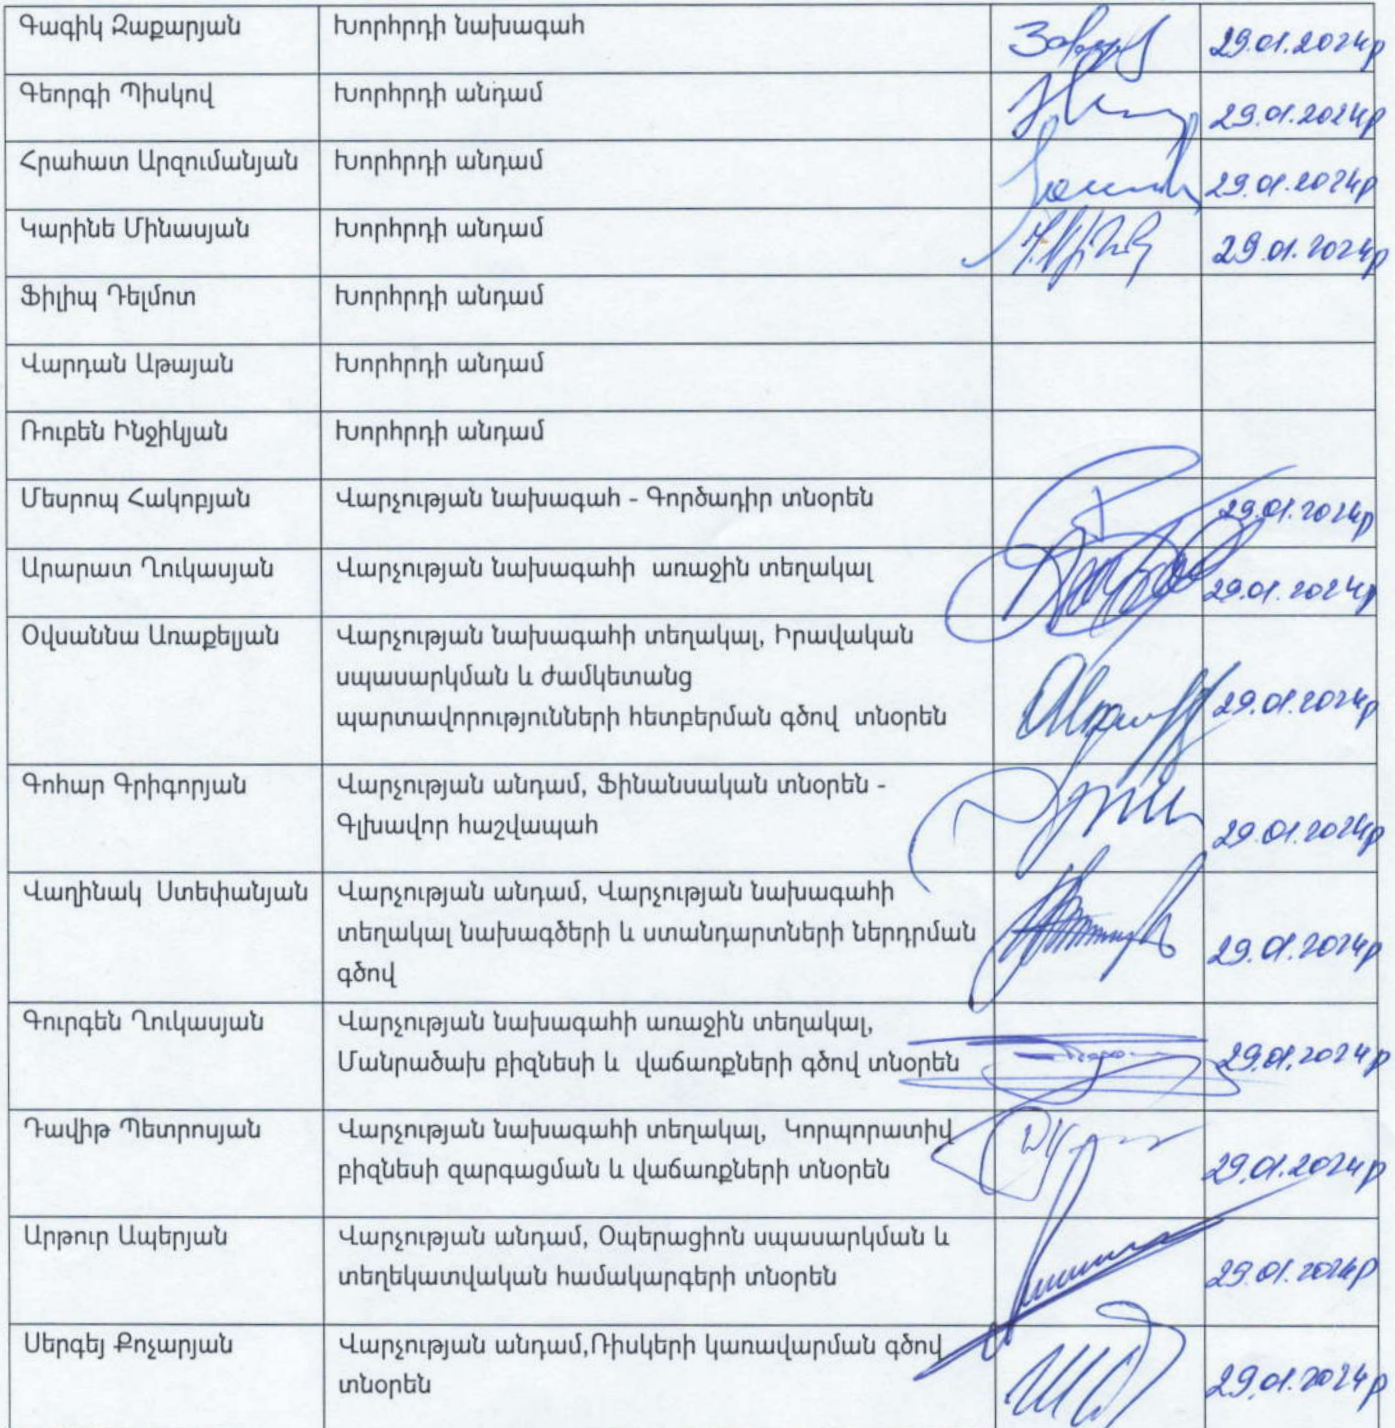 Գագիկ Զաքարյան Խորհրդի նախագահ 29.01.2024թ
Գեորգի Պիսկով Խորհրդի անդամ 29.01.2024թ
Հրահատ Արզումանյան Խորհրդի անդամ 29.01.2024թ
Կարինե Մինասյան Խորհրդի անդամ 29.01.2024թ
Ֆիլիպ Դելմոտ Խորհրդի անդամ
Վարդան Աթայան Խորհրդի անդամ
Ռուբեն Ինջիկյան Խորհրդի անդամ
Մեսրոպ Հակոբյան Վարչության նախագահ - Գործադիր տնօրեն 29.01.2024թ
Արարատ Ղուկասյան Վարչության նախագահի առաջին տեղակալ 29.01.2024թ
Օվսաննա Առաքելյան Վարչության նախագահի տեղակալ, Իրավական
սպասարկման և ժամկետանց
պարտավորությունների հետբերման գծով տնօրեն 29.01.2024թ
Գոհար Գրիգորյան Վարչության անդամ, Ֆինանսական տնօրեն -
Գլխավոր հաշվապահ 29.01.2024թ
Վաղինակ Ստեփանյան Վարչության անդամ, Վարչության նախագահի
տեղակալ նախագծերի և ստանդարտների ներդրման 29.01.2024թ
գծով
Գուրգեն Ղուկասյան Վարչության նախագահի առաջին տեղակալ,
Մանրածախ բիզնեսի և վաճառքների գծով տնօրեն 29.01.2024թ
Դավիթ Պետրոսյան Վարչության նախագահի տեղակալ, Կորպորատիվ
բիզնեսի զարգացման և վաճառքների տնօրեն 29.01.2024թ
Արթուր Ապերյան Վարչության անդամ, Օպերացիոն սպասարկման և
տեղեկատվական համակարգերի տնօրեն 29.01.2024թ
Սերգեյ Քոչարյան Վարչության անդամ,Ռիսկերի կառավարման գծով
տնօրեն 29.01.2024թ